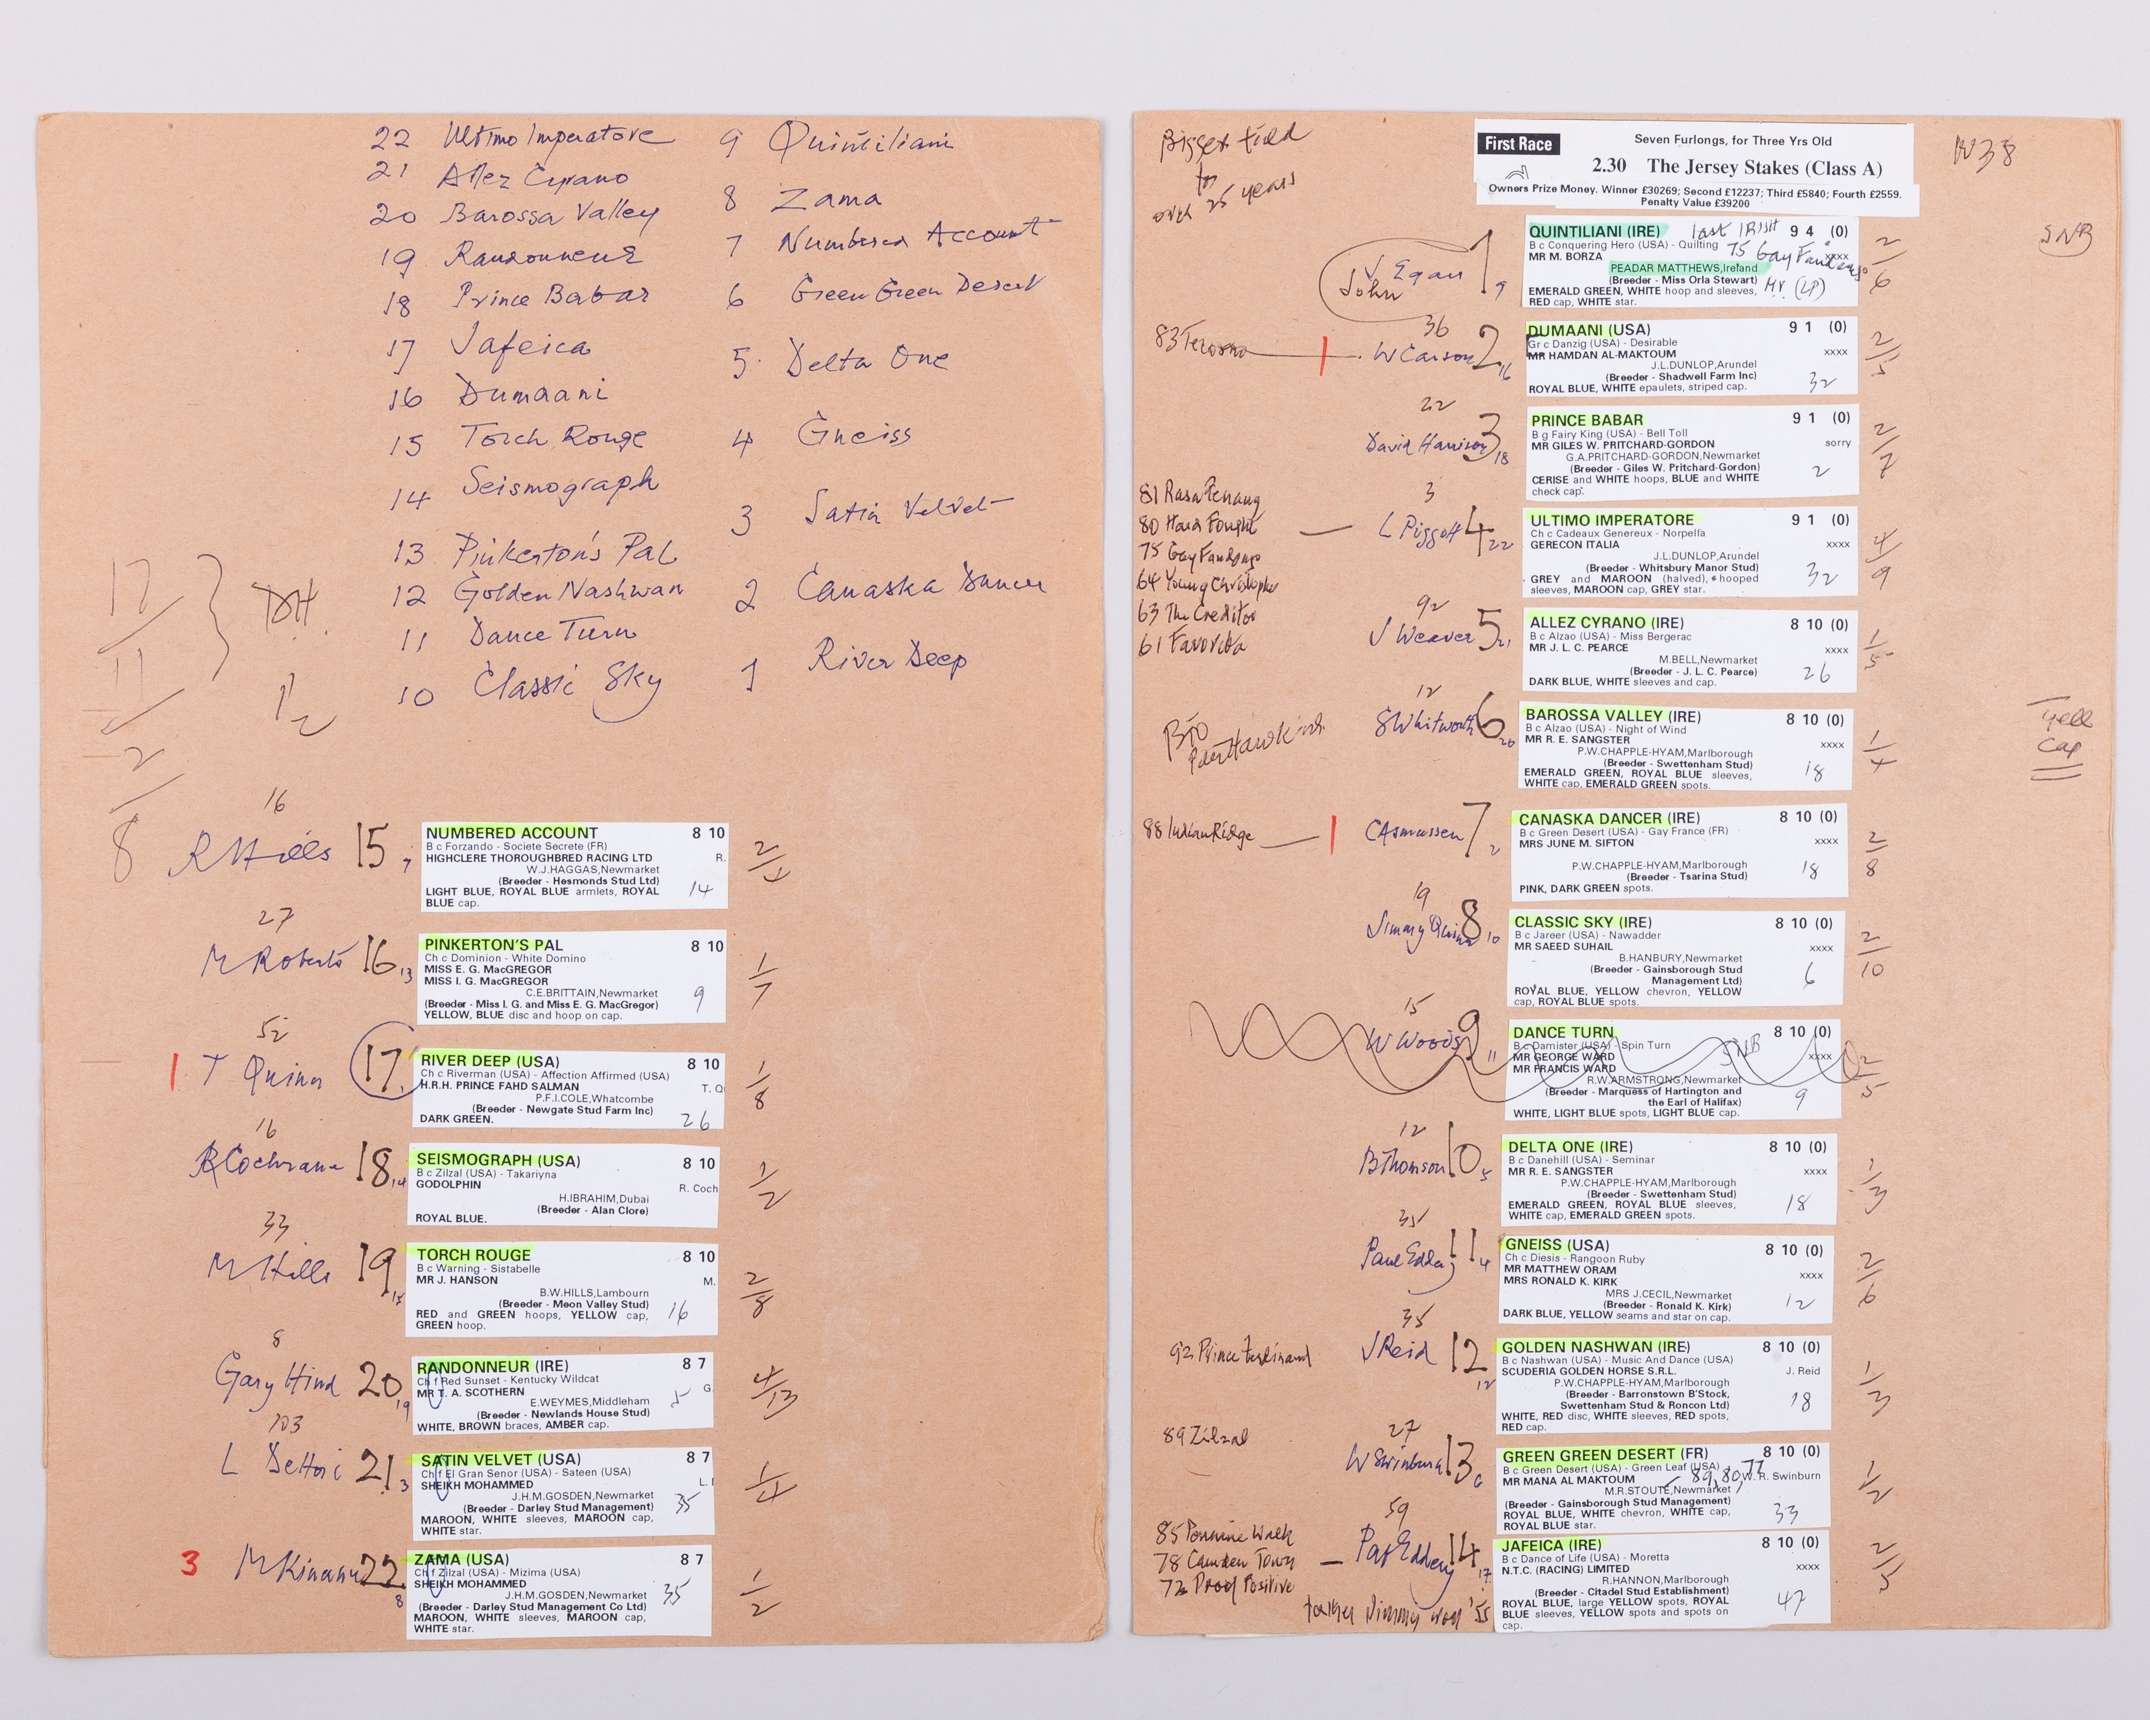 22 Ultimo Imperatore
21 Allez Cyrano
20 Barossa Valley
19 Randonneur
18 Prince Babar
17 Jafeica
16 Dumaani
15 Torch Rouge
14 Seismograph
13 Pinkerton's Pal
12 Golden Nashwan
11 Dance Turn
10 Classic Sky
9 Quintiliani
8 Zama
7 Numbered Account
6 Green Green Desert
5. Delta One
4 Gneiss
3 Satin Velvet
2 Canaska Dancer
1 River Deep
17
11
2
8
DH.
1/2
16
R Hills 15 7
NUMBERED ACCOUNT 8 10
B c Forzando - Societe Secrete (FR)
HIGHCLERE THOROUGHBRED RACING LTD R.
W.J.HAGGAS,Newmarket
(Breeder - Hesmonds Stud Ltd)
LIGHT BLUE, ROYAL BLUE armlets, ROYAL
BLUE cap.
14
27
M Roberts 16 13
PINKERTON'S PAL 8 10
Ch c Dominion - White Domino
MISS E. G. MacGREGOR
MISS I. G. MacGREGOR
C.E.BRITTAIN,Newmarket
(Breeder - Miss I. G. and Miss E. G. MacGregor)
YELLOW, BLUE disc and hoop on cap.
9
1/7
52
1 T Quinn 17
RIVER DEEP (USA) 8 10
Ch c Riverman (USA) - Affection Affirmed (USA)
H.R.H. PRINCE FAHD SALMAN T. Q
P.F.I.COLE,Whatcombe
(Breeder - Newgate Stud Farm Inc)
DARK GREEN.
26
1/8
16
R Cochrane 18 14
SEISMOGRAPH (USA) 8 10
B c Zilzal (USA) - Takariyna
GODOLPHIN R. Coch
H.IBRAHIM,Dubai
(Breeder - Alan Clore)
ROYAL BLUE.
1/2
33
M Hills 19 15
TORCH ROUGE 8 10
B c Warning - Sistabelle
MR J. HANSON M.
B.W.HILLS,Lambourn
(Breeder - Meon Valley Stud)
RED and GREEN hoops, YELLOW cap,
GREEN hoop.
16
2/8
8
Gary Hind 20 19
RANDONNEUR (IRE) 8 7
Ch f Red Sunset - Kentucky Wildcat
MR T. A. SCOTHERN G.
E.WEYMES,Middleham
(Breeder - Newlands House Stud)
WHITE, BROWN braces, AMBER cap.
5
4/13
103
L Dettori 21 3
SATIN VELVET (USA) 8 7
Ch f El Gran Senor (USA) - Sateen (USA)
SHEIKH MOHAMMED L.
J.H.M.GOSDEN,Newmarket
(Breeder - Darley Stud Management)
MAROON, WHITE sleeves, MAROON cap,
WHITE star.
35
1/4
3 M Kinane 22 8
ZAMA (USA) 8 7
Ch f Zilzal (USA) - Mizima (USA)
SHEIKH MOHAMMED
J.H.M.GOSDEN,Newmarket
(Breeder - Darley Stud Management Co Ltd)
MAROON, WHITE sleeves, MAROON cap,
WHITE star.
35
1/2
Biggest field
for
over 25 years
First Race
Seven Furlongs, for Three Yrs Old
2.30 The Jersey Stakes (Class A)
Owners Prize Money. Winner £30269; Second £12237; Third £5840; Fourth £2559.
Penalty Value £39200
W38
SNB
J Egan 1 9
John
QUINTILIANI (IRE) 9 4 (0)
last IRISH
B c Conquering Hero (USA) - Quilting
75 Gay Fandango
MR M. BORZA xxxx
PEADAR MATTHEWS,Ireland
(Breeder - Miss Orla Stewart)
(LP)
EMERALD GREEN, WHITE hoop and sleeves,
RED cap, WHITE star.
2/6
36
83 Tecorno 1 W Carson 2 16
DUMAANI (USA) 9 1 (0)
Gr c Danzig (USA) - Desirable
MR HAMDAN AL-MAKTOUM xxxx
J.L.DUNLOP,Arundel
(Breeder - Shadwell Farm Inc)
ROYAL BLUE, WHITE epaulets, striped cap.
32
2/5
22
David Harrison 3 18
PRINCE BABAR 9 1 (0)
B g Fairy King (USA) - Bell Toll
MR GILES W. PRITCHARD-GORDON sorry
G.A.PRITCHARD-GORDON,Newmarket
(Breeder - Giles W. Pritchard-Gordon)
CERISE and WHITE hoops, BLUE and WHITE
check cap.
2
2/7
81 Rasa Penang
80 Hard Fought
75 Gay Fandango
64 Young Christopher
63 The Creditor
61 Favorita
3
L Piggott 4 22
ULTIMO IMPERATORE 9 1 (0)
Ch c Cadeaux Genereux - Norpella
GERECON ITALIA xxxx
J.L.DUNLOP,Arundel
(Breeder - Whitsbury Manor Stud)
GREY and MAROON (halved), hooped
sleeves, MAROON cap, GREY star.
32
4/9
92
J Weaver 5 21
ALLEZ CYRANO (IRE) 8 10 (0)
B c Alzao (USA) - Miss Bergerac
MR J. L. C. PEARCE xxxx
M.BELL,Newmarket
(Breeder - J. L. C. Pearce)
DARK BLUE, WHITE sleeves and cap.
26
1/5
BTO
Peter Hawkins
12
S Whitworth 6 20
BAROSSA VALLEY (IRE) 8 10 (0)
B c Alzao (USA) - Night of Wind
MR R. E. SANGSTER xxxx
P.W.CHAPPLE-HYAM,Marlborough
(Breeder - Swettenham Stud)
EMERALD GREEN, ROYAL BLUE sleeves,
WHITE cap, EMERALD GREEN spots.
18
Yell
Cap
88 Indian Ridge 1 C Asmussen 7 2
CANASKA DANCER (IRE) 8 10 (0)
B c Green Desert (USA) - Gay France (FR)
MRS JUNE M. SIFTON xxxx
P.W.CHAPPLE-HYAM,Marlborough
(Breeder - Tsarina Stud)
PINK, DARK GREEN spots.
18
2/8
19
Jimmy Quinn 8 10
CLASSIC SKY (IRE) 8 10 (0)
B c Jareer (USA) - Nawadder
MR SAEED SUHAIL xxxx
B.HANBURY,Newmarket
(Breeder - Gainsborough Stud
Management Ltd)
ROYAL BLUE, YELLOW chevron, YELLOW
cap, ROYAL BLUE spots.
6
2/10
15
W Woods 9 11
DANCE TURN 8 10 (0)
B c Damister (USA) - Spin Turn
SNB
MR GEORGE WARD xxxx
MR FRANCIS WARD
R.W.ARMSTRONG,Newmarket
(Breeder - Marquess of Hartington and
the Earl of Halifax)
WHITE, LIGHT BLUE spots, LIGHT BLUE cap.
9
2/5
12
B Thomson 10 5
DELTA ONE (IRE) 8 10 (0)
B c Danehill (USA) - Seminar
MR R. E. SANGSTER xxxx
P.W.CHAPPLE-HYAM,Marlborough
(Breeder - Swettenham Stud)
EMERALD GREEN, ROYAL BLUE sleeves,
WHITE cap, EMERALD GREEN spots.
18
1/3
35
Paul Eddery 11 4
GNEISS (USA) 8 10 (0)
Ch c Diesis - Rangoon Ruby
MR MATTHEW ORAM
MRS RONALD K. KIRK xxxx
MRS J.CECIL,Newmarket
(Breeder - Ronald K. Kirk)
DARK BLUE, YELLOW seams and star on cap.
12
2/6
35
92 Prince Ferdinand J Reid 12 12
GOLDEN NASHWAN (IRE) 8 10 (0)
B c Nashwan (USA) - Music And Dance (USA)
SCUDERIA GOLDEN HORSE S.R.L. J. Reid
P.W.CHAPPLE-HYAM,Marlborough
(Breeder - Barronstown B'Stock,
Swettenham Stud & Roncon Ltd)
WHITE, RED disc, WHITE sleeves, RED spots,
RED cap.
18
1/3
27
89 Zilzal W Swinburn 13 6
GREEN GREEN DESERT (FR) 8 10 (0)
B c Green Desert (USA) - Green Leaf (USA)
89, 80, 77
MR MANA AL MAKTOUM W. R. Swinburn
M.R.STOUTE,Newmarket
(Breeder - Gainsborough Stud Management)
ROYAL BLUE, WHITE chevron, WHITE cap,
ROYAL BLUE star.
33
1/2
85 Pennine Walk
78 Camden Town
72 Proof Positive
59
Pat Eddery 14 17
father Jimmy won '55
JAFEICA (IRE) 8 10 (0)
B c Dance of Life (USA) - Moretta
N.T.C. (RACING) LIMITED xxxx
R.HANNON,Marlborough
(Breeder - Citadel Stud Establishment)
ROYAL BLUE, large YELLOW spots, ROYAL
BLUE sleeves, YELLOW spots and spots on
cap.
47
2/5